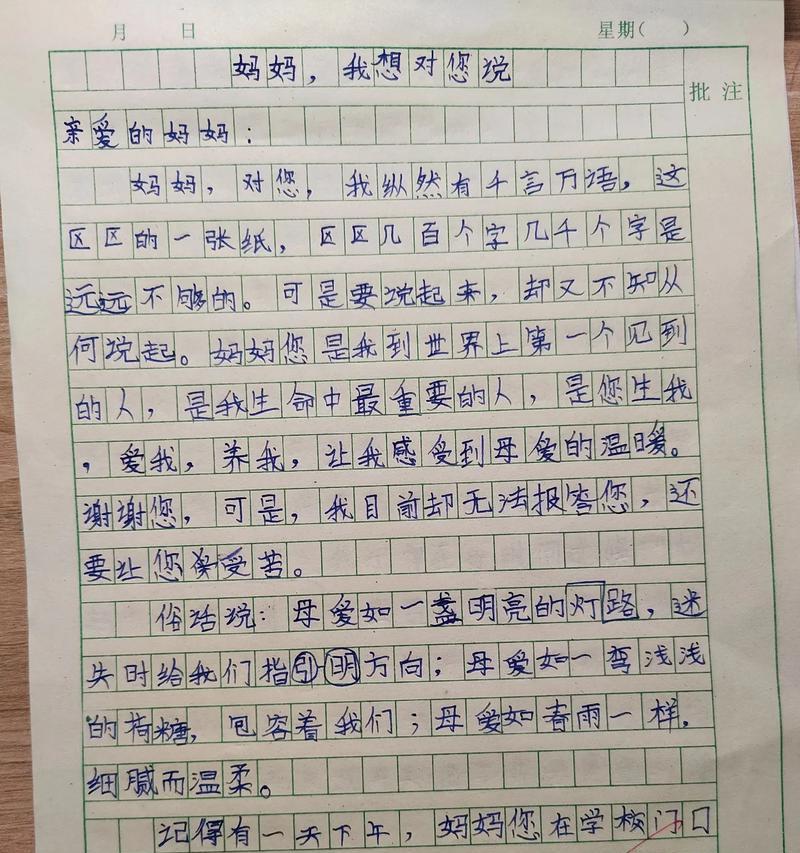 月 日 星期( )
妈妈，我想对您说
批注
亲爱的妈妈：
妈妈，对您，我纵然有千言万语，这
区区的一张纸，区区几百个字几千个字是
远远不够的。可是要说起来，却又不知从
何说起。妈妈您是我到世界上第一个见到
的人，是我生命中最重要的人，是您生我
，爱我，养我，让我感受到母爱的温暖。
谢谢您，可是，我目前却无法报答您，还
要让您受苦。
俗话说：母爱如一盏明亮的灯路，迷
失时给我们指引明方向；母爱如一弯浅浅
的荷糖，包容着我们；母爱如春雨一样，
细腻而温柔。
记得有一天下午，妈妈您在学校门口